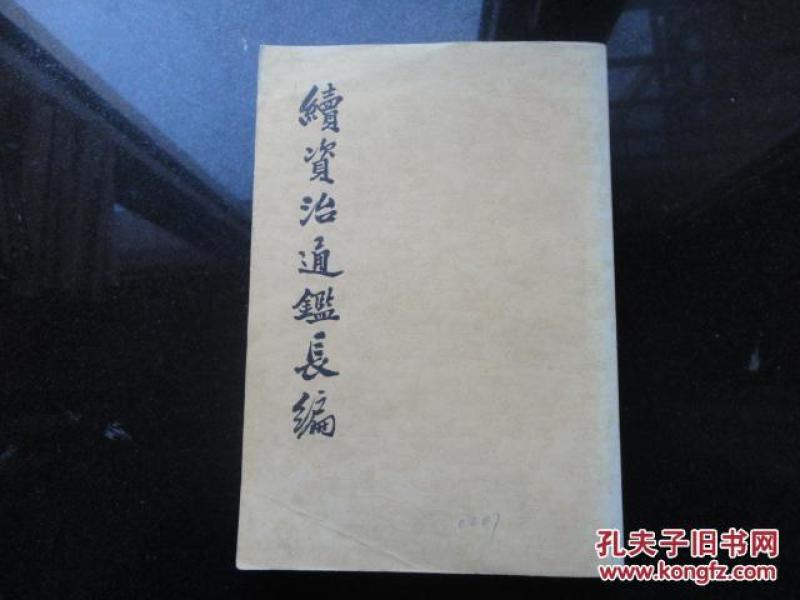 續資治通鑑長編
0207
孔夫子旧书网
www.kongfz.com